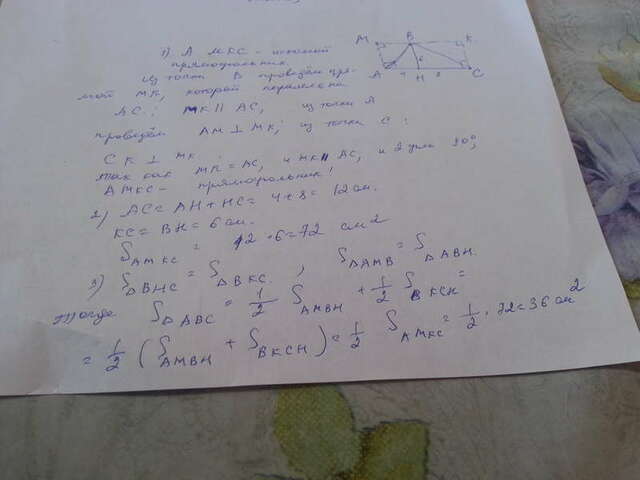 1) AMKC - искомый
прямоугольник.
Из точки B проведём пря-
мой MK, которой параллельна
AC; MK || AC, из точки A
проведём AM ⊥ MK; из точки C:
CK ⊥ MK
так как MK = AC, и MK || AC, и 2 угла 90°,
AMKC - прямоугольник!
2) AC = AH + HC = 4 + 8 = 12 см.
KC = BH = 6 см.
S AMKC = 12 · 6 = 72 см²
3) S ΔBHC = S ΔBKC, S ΔAMB = S ΔABH.
тогда S ΔABC = 1/2 S AMBH + 1/2 S BKCH =
= 1/2 (S AMBH + S BKCH) = 1/2 S AMKC = 1/2 · 72 = 36 см²
M B K
6
A 4 H 8 C